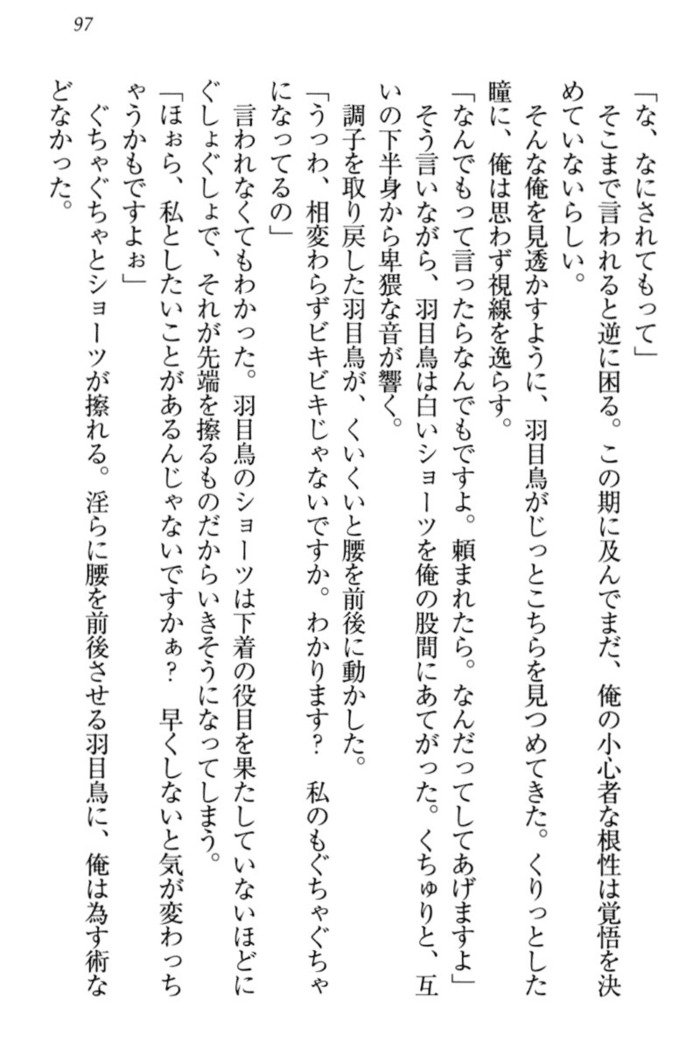 97
「な、なにされてもって」
そこまで言われると逆に困る。この期に及んでまだ、俺の小心者な根性は覚悟を決
めていないらしい。
そんな俺を見透かすように、羽目鳥がじっとこちらを見つめてきた。くりっとした
瞳に、俺は思わず視線を逸らす。
「なんでもって言ったらなんでもですよ。頼まれたら。なんだってしてあげますよ」
そう言いながら、羽目鳥は白いショーツを俺の股間にあてがった。くちゅりと、互
いの下半身から卑猥な音が響く。
調子を取り戻した羽目鳥が、くいくいと腰を前後に動かした。
「うっわ、相変わらずビキビキじゃないですか。わかります?　私のもぐちゃぐちゃ
になってるの」
言われなくてもわかった。羽目鳥のショーツは下着の役目を果たしていないほどに
ぐしょぐしょで、それが先端を擦るものだからいきそうになってしまう。
「ほぉら、私としたいことがあるんじゃないですかぁ?　早くしないと気が変わっち
ゃうかもですよぉ」
ぐちゃぐちゃとショーツが擦れる。淫らに腰を前後させる羽目鳥に、俺は為す術な
どなかった。